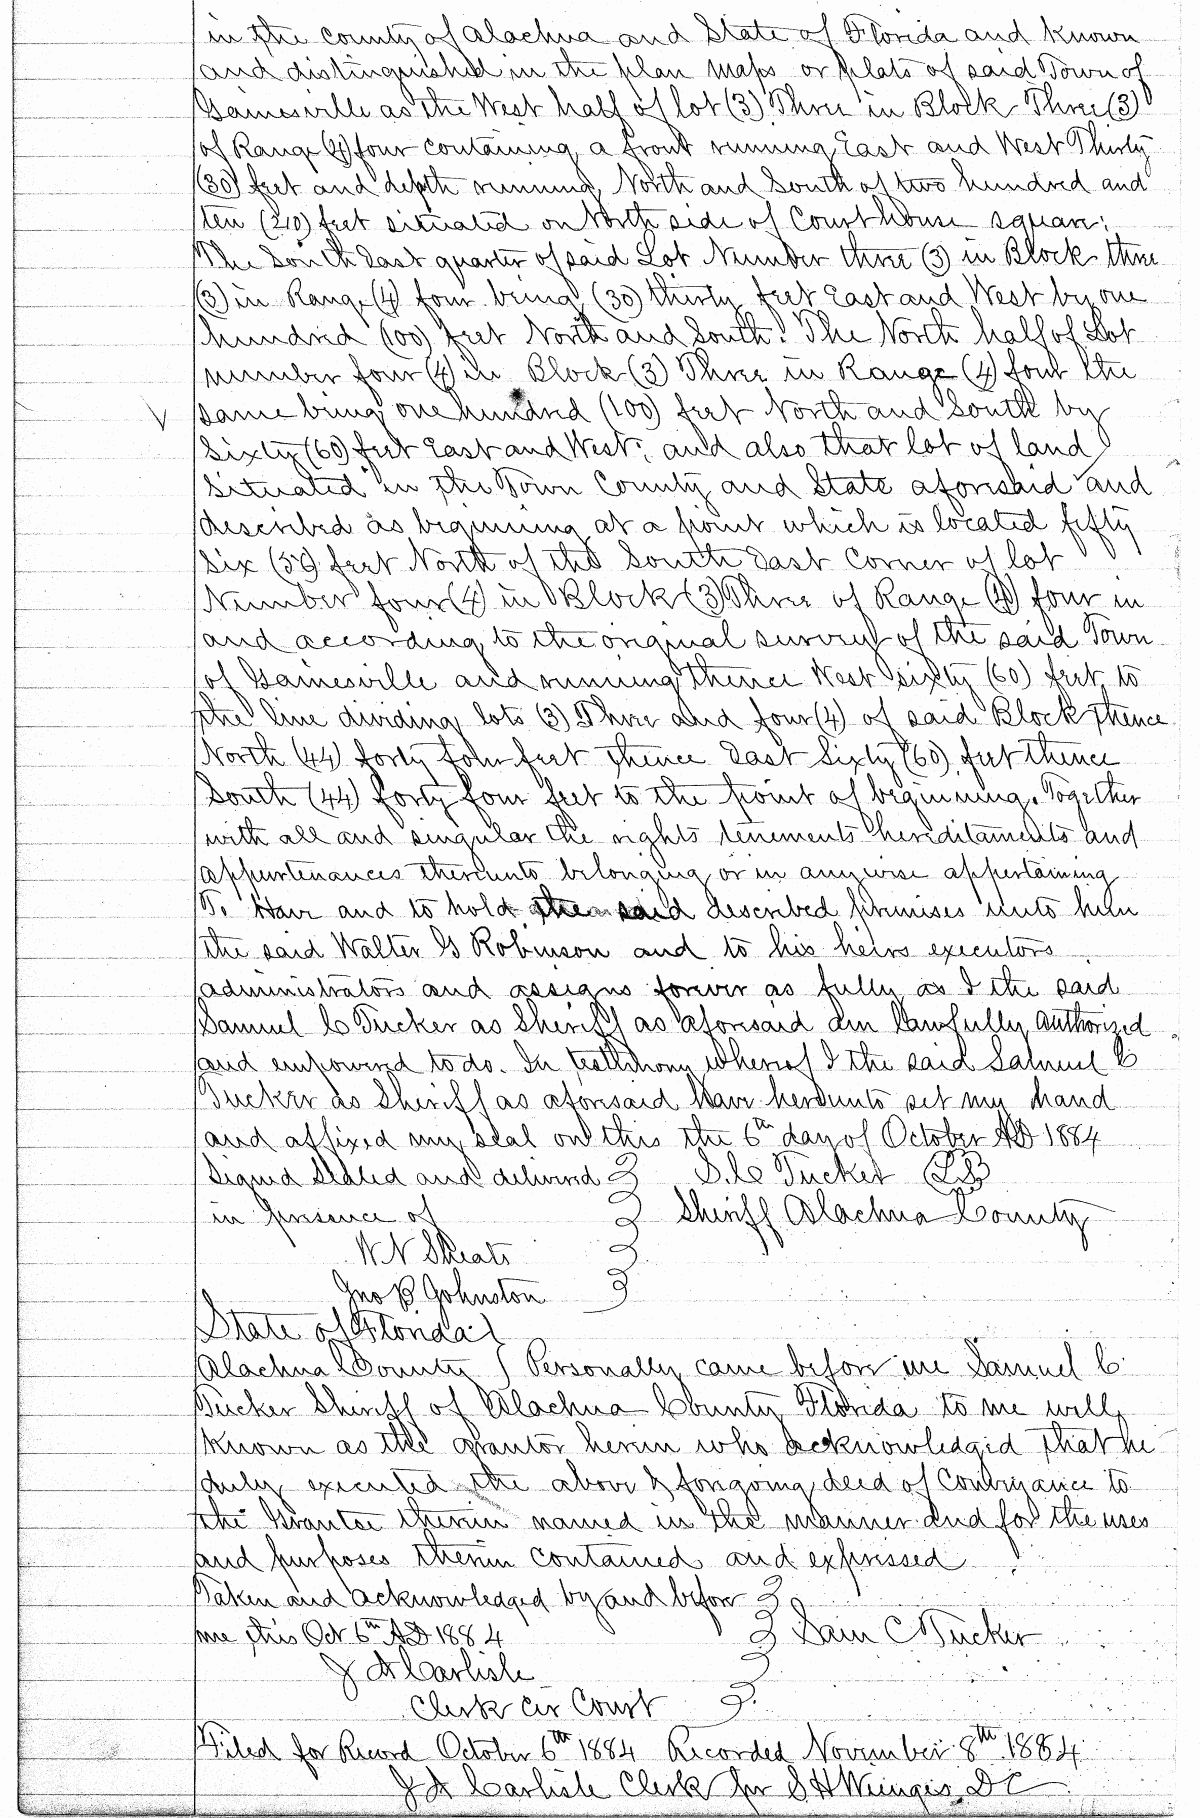 in the County of Alachua and State of Florida and known
and distinguished in the plan maps or plats of said Town of
Gainesville as the West half of lot (3) Three in Block Three (3)
of Range (4) four containing a front running East and West Thirty
(30) feet and depth running North and South of two hundred and
ten (210) feet situated on North side of Court house square;
The South East quarter of said Lot Number three (3) in Block three
(3) in Range (4) four being (30) thirty feet East and West by one
hundred (100) feet North and South. The North half of Lot
number four (4) in Block (3) Three in Range (4) four the
same being one hundred (100) feet North and South by
Sixty (60) feet East and West; and also that lot of land
Situated in the Town County and State aforesaid and
described as beginning at a point which is located fifty
six (56) feet North of the South East Corner of lot
Number four (4) in Block (3) Three of Range (4) four in
and according to the original survey of the said Town
of Gainesville and running thence West sixty (60) feet to
the line dividing lots (3) Three and four (4) of said Block thence
North (44) forty four feet thence East Sixty (60) feet thence
South (44) forty four feet to the point of beginning. Together
with all and singular the rights tenements hereditaments and
appurtenances thereunto belonging or in anywise appertaining
To Have and to hold the said described premises unto him
the said Walter G Robinson and to his heirs executors
administrators and assigns forever as fully as I the said
Samuel C Tucker as Sheriff as aforesaid am lawfully authorized
and empowered to do. In testimony whereof I the said Samuel C
Tucker as Sheriff as aforesaid have hereunto set my hand
and affixed my seal on this the 6th day of October AD 1884
Signed Sealed and delivered S. C Tucker (LS)
in presence of Sheriff Alachua County
W N Sheats
Jno B Johnston
State of Florida
Alachua County Personally came before me Samuel C
Tucker Sheriff of Alachua County Florida to me well
known as the grantor herein who acknowledged that he
duly executed the above & forgoing deed of Conveyance to
the Grantee therein named in the manner and for the uses
and purposes therein contained and expressed
Taken and acknowledged by and before
me this Oct 6th AD 1884 Sam C Tucker
J A Carlisle
Clerk Cir Court
Filed for Record October 6th 1884 Recorded November 8th 1884
J A Carlisle Clerk per S H Wienges DC